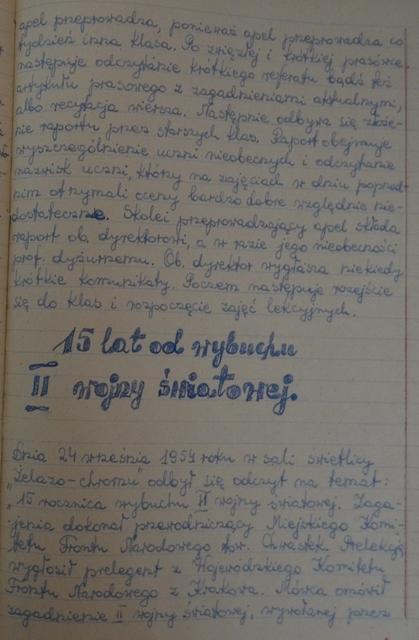 apel przeprowadza, ponieważ apel przeprowadza co
tydzień inna klasa. Po zwięzłej i krótkiej prasówce
następuje odczytanie krótkiego referatu bądź też
artykułu prasowego z zagadnieniami aktualnymi,
albo recytacja wiersza. Następnie odbywa się złoże-
nie raportu przez starszych klas. Raport obejmuje
wyszczególnienie uczni nieobecnych i odczytanie
nazwisk uczni, którzy na zajęciach w dniu poprzed-
nim otrzymali oceny bardzo dobre względnie nie-
dostateczne. Skolei przeprowadzający apel składa
raport ob. dyrektorowi, a w razie jego nieobecności
prof. dyżurnemu. Ob. dyrektor wygłasza niekiedy
krótkie komunikaty. Poczem następuje rozejście
się do klas i rozpoczęcie zajęć lekcyjnych.
15 lat od wybuchu
II wojny światowej.
Dnia 24 września 1954 roku w sali świetlicy
"Żelazo-chromu" odbył się odczyt na temat:
"15 rocznica wybuchu II wojny światowej. Zaga-
jenia dokonał przewodniczący Miejskiego Komi-
tetu Frontu Narodowego tow. Chrastek. Prelekcję
wygłosił prelegent z Wojewódzkiego Komitetu
Frontu Narodowego z Krakowa. Mówca omówił
zagadnienie II wojny światowej, wywołanej przez